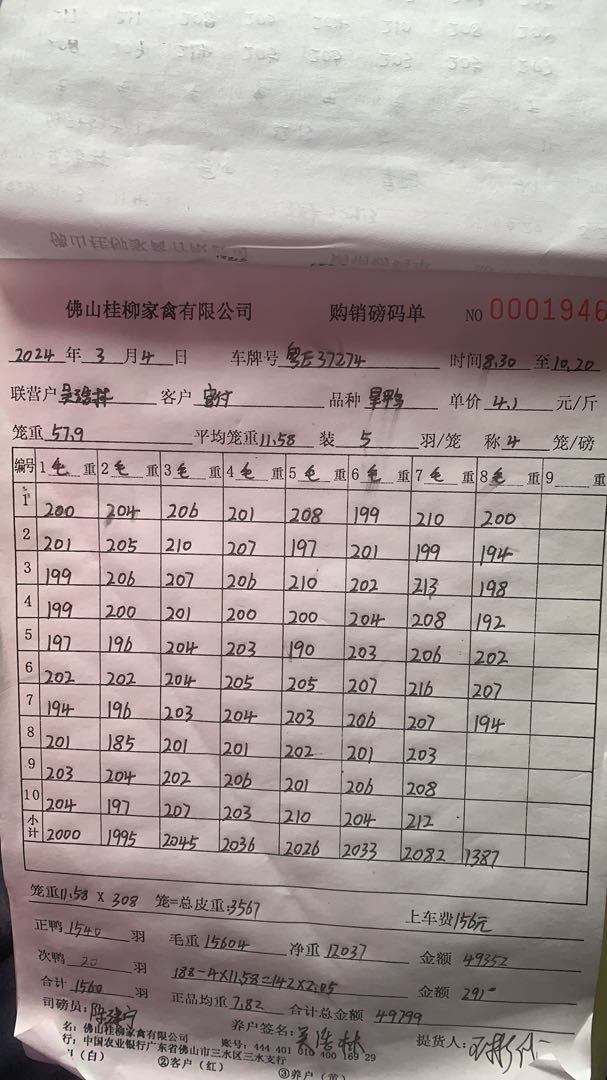 佛山桂柳家禽有限公司 购销磅码单 NO 0001946
2024 年 3 月 4 日 车牌号 粤E37274 时间 8.30 至 10.20
联营户 吴浩林 客户 客付 品种 旱鸭 单价 4.1 元/斤
笼重 57.9 平均笼重 11.58 装 5 羽/笼 称 4 笼/磅
编号 1 毛 重 2 毛 重 3 毛 重 4 毛 重 5 毛 重 6 毛 重 7 毛 重 8 毛 重 9 重
1 200 204 206 201 208 199 210 200
2 201 205 210 207 197 201 199 194
3 199 206 207 206 210 202 213 198
4 199 200 201 200 200 204 208 192
5 197 196 204 203 190 203 206 202
6 202 202 204 205 205 207 216 207
7 194 196 203 204 203 206 207 194
8 201 185 201 201 202 201 203
9 203 204 202 206 201 206 208
10 204 197 207 203 210 204 212
小计 2000 1995 2045 2036 2026 2033 2082 1387
笼重 11.58 X 308 笼=总皮重:3567 上车费 156元
正鸭 1540 羽 毛重 15604 净重 12037 金额 49352
次鸭 20 羽 188-4×11.58=142×2.05 金额 291
合计 1560 羽 正品均重 7.82 合计总金额 49799
司磅员: 养户签名: 吴浩林 提货人:
名: 佛山桂柳家禽有限公司 账号: 444 401 010 400 169 29
行: 中国农业银行广东省佛山市三水区三水支行
(白) ②客户(红) ③养户(黄)